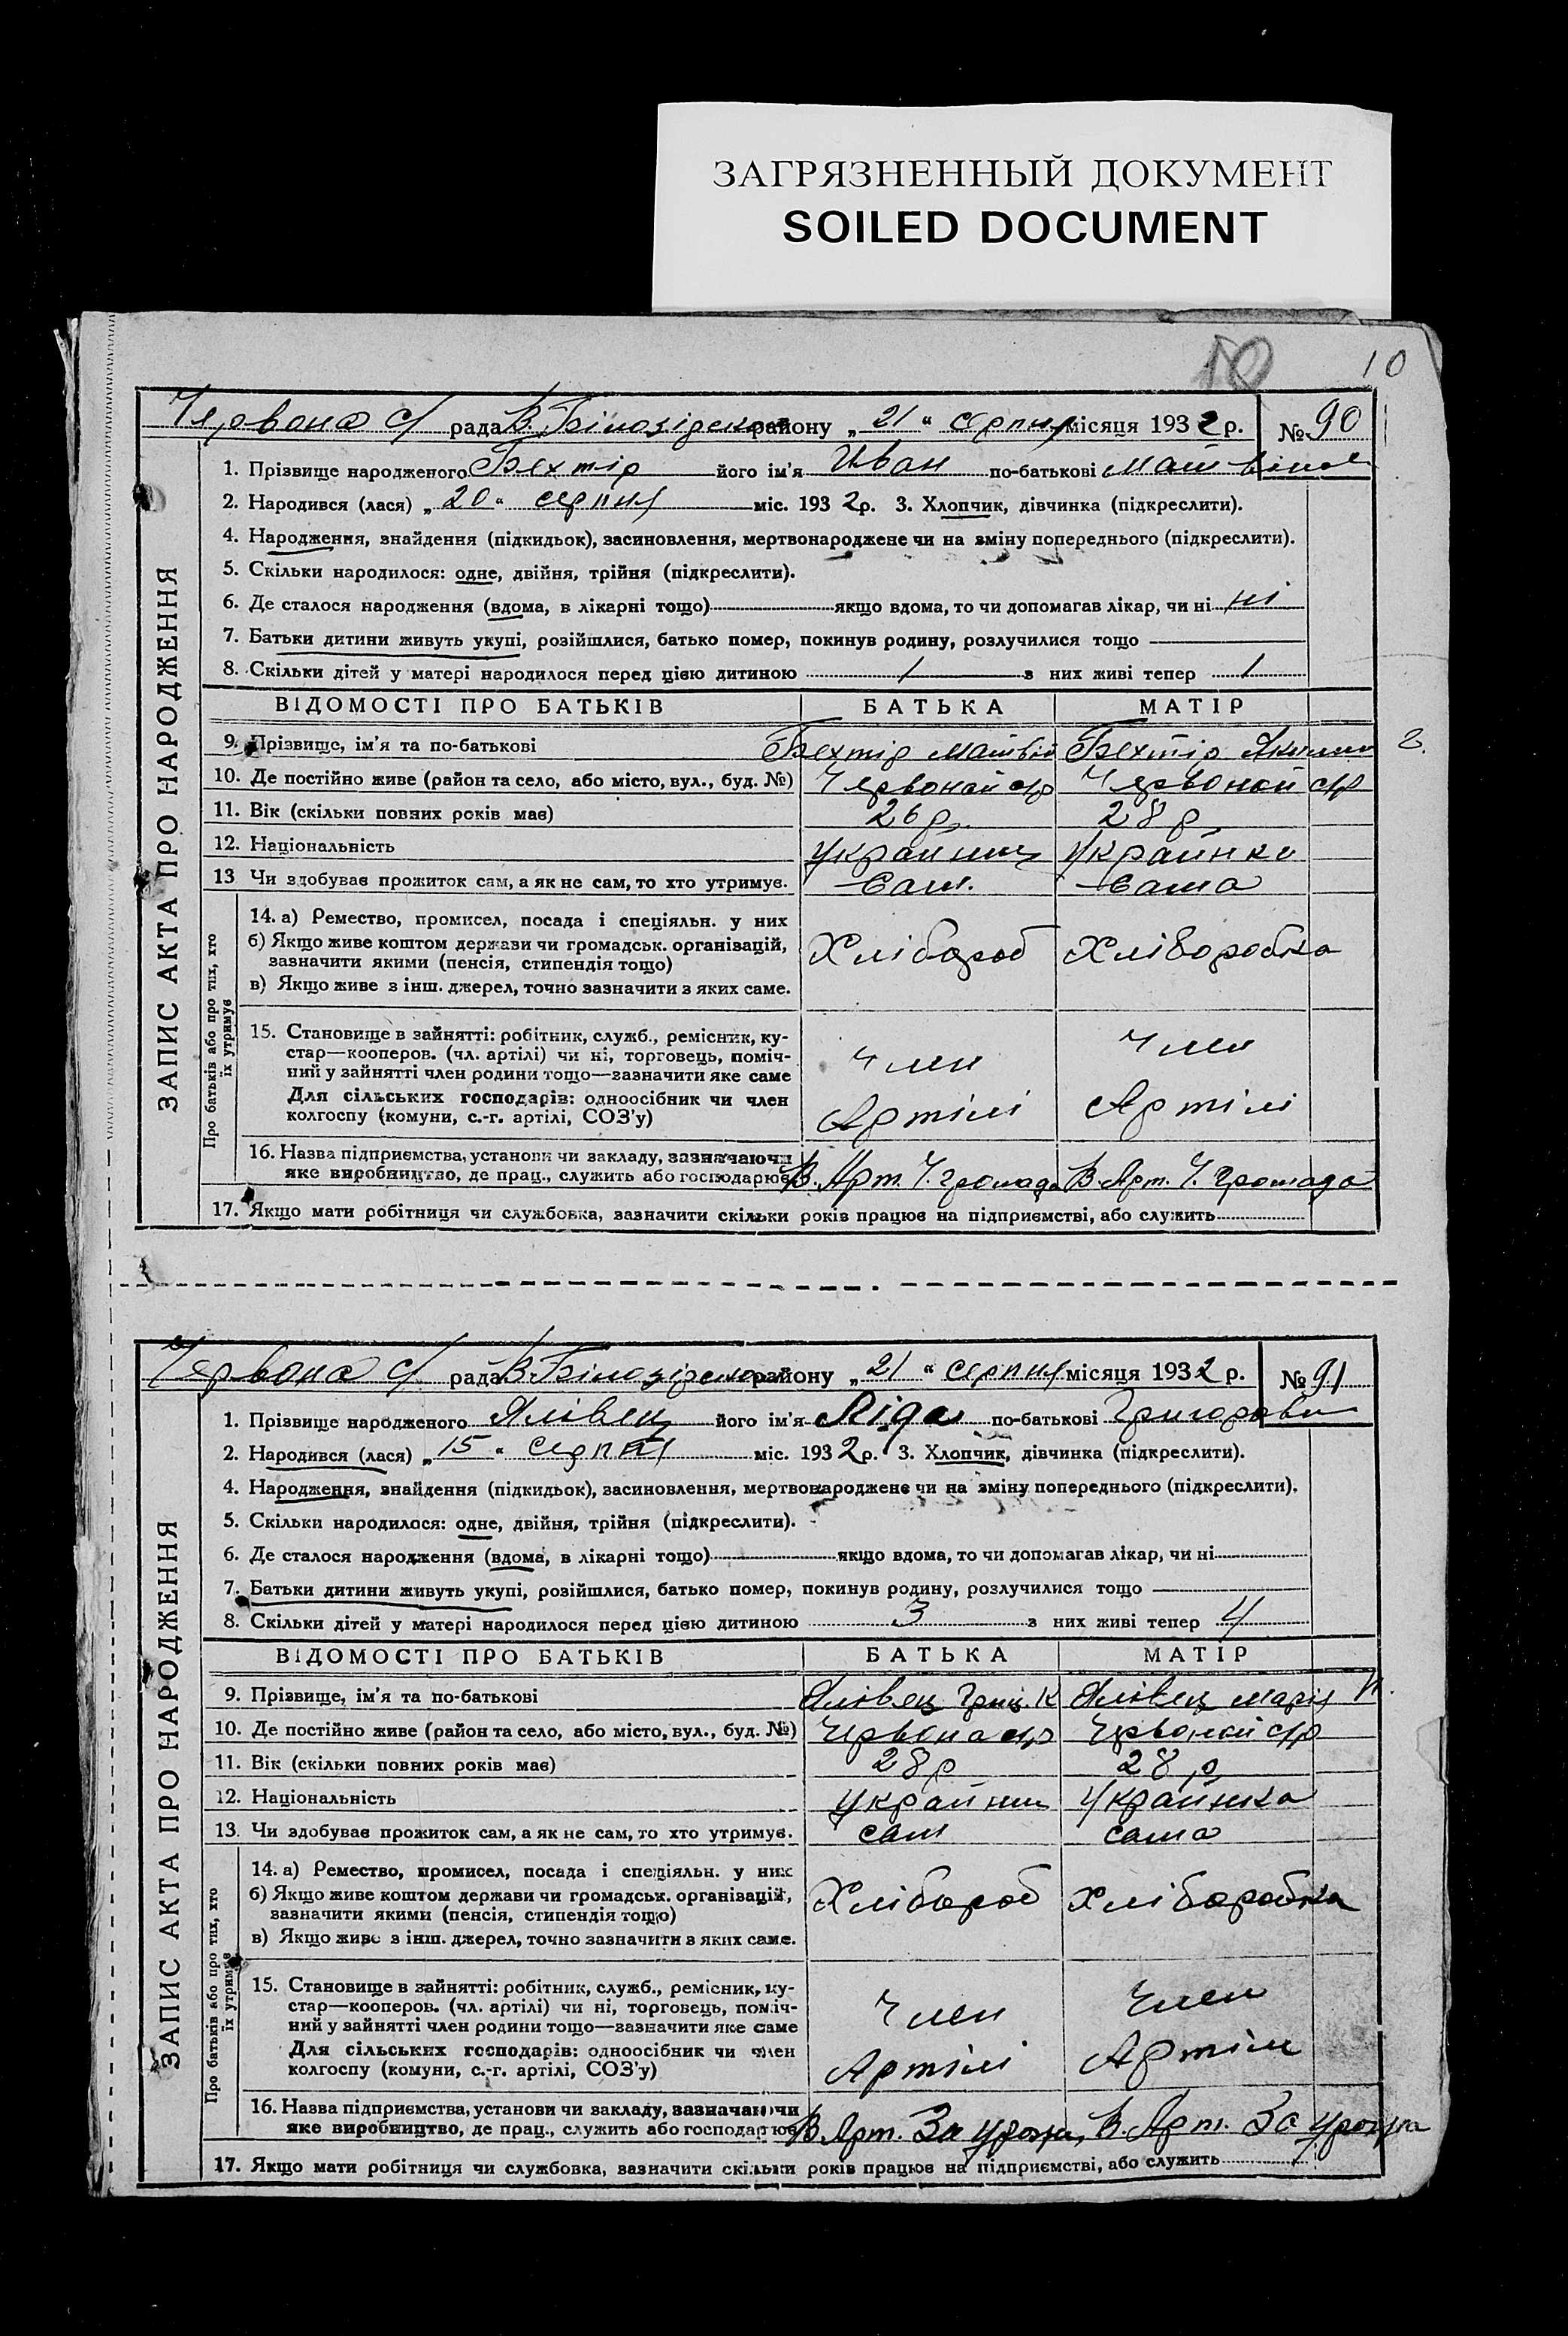 ЗАГРЯЗНЕННЫЙ ДОКУМЕНТ
SOILED DOCUMENT
10
10
Червона с/ рада В. Білозірського району „ 21 “ серпня місяця 1932 р. № 90
ЗАПИС АКТА ПРО НАРОДЖЕННЯ
1. Прізвище народженого Бехтір його ім'я Иван по-батькові
2. Народився (лася) „ 20 “ серпня міс. 1932 р. 3. Хлопчик, дівчинка (підкреслити).
4. Народження, знайдення (підкидьок), засиновлення, мертвонароджене чи на зміну попереднього (підкреслити).
5. Скільки народилося: одне, двійня, трійня (підкреслити).
6. Де сталося народження (вдома, в лікарні тощо) якщо вдома, то чи допомагав лікар, чи ні ні
7. Батьки дитини живуть укупі, розійшлися, батько помер, покинув родину, розлучилися тощо
8. Скільки дітей у матері народилося перед цією дитиною 1 з них живі тепер 1
ВІДОМОСТІ ПРО БАТЬКІВ БАТЬКА МАТІР
9. Прізвище, ім'я та по-батькові Бехтір Матвій Бехтір
10. Де постійно живе (район та село, або місто, вул., буд. №) Червоной с/р Червоной с/р
11. Вік (скільки повних років має) 26 р. 28 р
12. Національність украйнець украйнка
13 Чи здобував прожиток сам, а як не сам, то хто утримує. Сам. Сама
Про батьків або про тих, хто їх утримує
14. а) Ремество, промисел, посада і спеціяльн. у них
б) Якщо живе коштом держави чи громадськ. організацій,
зазначити якими (пенсія, стипендія тощо) Хлібороб Хліборобка
в) Якщо живе з інш. джерел, точно зазначити з яких саме.
15. Становище в зайнятті: робітник, служб., ремісник, ку-
стар—кооперов. (чл. артілі) чи ні, торговець, поміч-
ний у зайнятті член родини тощо—зазначити яке саме Член Член
Для сільських господарів: одноосібник чи член
колгоспу (комуни, с.-г. артілі, СОЗ'у) Артілі Артілі
16. Назва підприємства, установи чи закладу, зазначаючи
яке виробництво, де прац., служить або господарює В. Арт. Ч. Громада В. Арт. Ч. Громада
17. Якщо мати робітниця чи службовка, зазначити скільки років працює на підприємстві, або служить
Червона с/ рада В. Білозірського району „ 21 “ серпня місяця 1932 р. № 91
ЗАПИС АКТА ПРО НАРОДЖЕННЯ
1. Прізвище народженого Яловец його ім'я Ліда по-батькові
2. Народився (лася) „ 15 “ серпня міс. 1932 р. 3. Хлопчик, дівчинка (підкреслити).
4. Народження, знайдення (підкидьок), засиновлення, мертвонароджене чи на зміну попереднього (підкреслити).
5. Скільки народилося: одне, двійня, трійня (підкреслити).
6. Де сталося народження (вдома, в лікарні тощо) якщо вдома, то чи допомагав лікар, чи ні
7. Батьки дитини живуть укупі, розійшлися, батько помер, покинув родину, розлучилися тощо
8. Скільки дітей у матері народилося перед цією дитиною 3 з них живі тепер 4
ВІДОМОСТІ ПРО БАТЬКІВ БАТЬКА МАТІР
9. Прізвище, ім'я та по-батькові Яловец Гриц. К Яловец Марія
10. Де постійно живе (район та село, або місто, вул., буд. №) Червона с/р Червоной с/р
11. Вік (скільки повних років має) 28 р 28 р
12. Національність украйнец украйнка
13. Чи здобував прожиток сам, а як не сам, то хто утримує. сам сама
Про батьків або про тих, хто їх утримує
14. а) Ремество, промисел, посада і спеціяльн. у них
б) Якщо живе коштом держави чи громадськ. організацій,
зазначити якими (пенсія, стипендія тощо) Хлібороб Хліборобка
в) Якщо живе з інш. джерел, точно зазначити з яких саме.
15. Становище в зайнятті: робітник, служб., ремісник, ку-
стар—кооперов. (чл. артілі) чи ні, торговець, поміч-
ний у зайнятті член родини тощо—зазначити яке саме Член Член
Для сільських господарів: одноосібник чи член
колгоспу (комуни, с.-г. артілі, СОЗ'у) Артілі Артілі
16. Назва підприємства, установи чи закладу, зазначаючи
яке виробництво, де прац., служить або господарює В. Арт. За урожа В. Арт. За урожа
17. Якщо мати робітниця чи службовка, зазначити скільки років працює на підприємстві, або служить